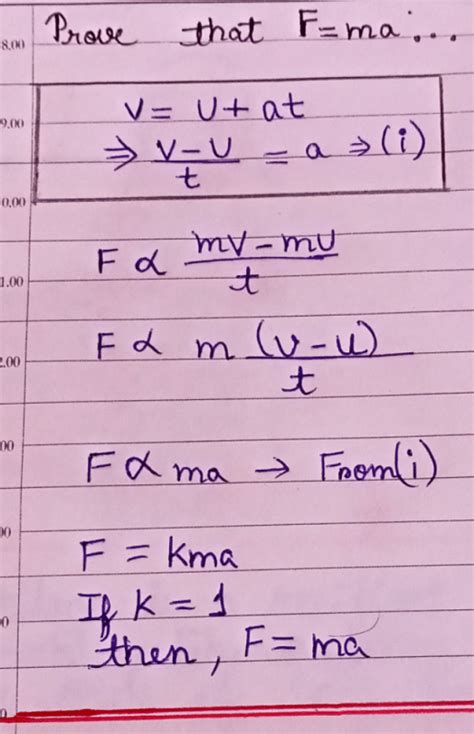 Prove that F=ma...
8.00
V = U + at
9.00
⇒ V-U/t = a ⇒ (i)
0.00
F ∝ mV-mU/t
1.00
F ∝ m (v-u)/t
2.00
00
F ∝ ma → From(i)
00
F = Kma
If K = 1
0
then, F = ma
0